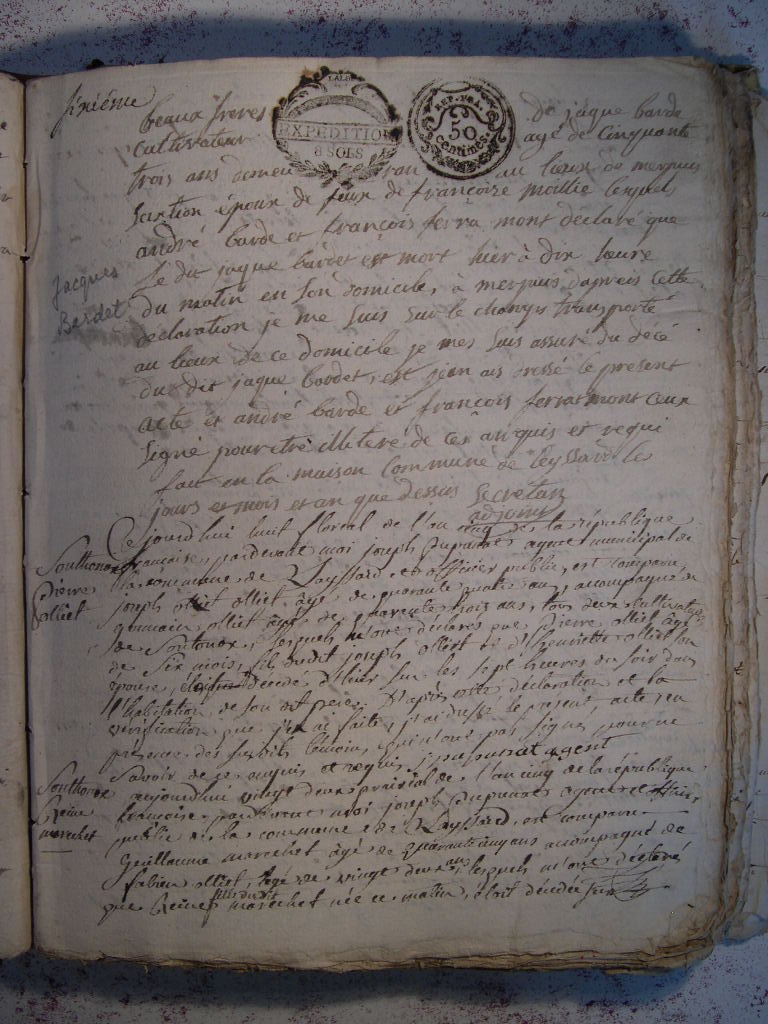 sixième
LALB
EXPEDITION
8 SOLS
REP. FRA.
50
centimes
beaux freres de jaque barde
Cultivateur agé de Cinquante
trois ans demeu ran au lieux de merpuis
Santion époux de feux de françoise maillie lesquels
andré barde et françois ferra mont declaré que
le dit jaque bardet est mort hier à dix heure
du matin en son domicile, à merpuis dapreis Cette
declaration je me suis sur le champs transporté
au lieux de ce domicile je mes suis assuré du décé
du dit jaque bardet, est jean ais dressé le present
acte et andré barde et françois ferrat mont ceux
signé pour etre illiteré de ces anquis et requi
fait en la maison Commune de leyssard les
jours et mois et an que dessus Secretan
adjoint
Jacques
Bardet
Ce jourd'hui huit floreal de l'an cinq de la république
française, pardevant moi joseph Dupraat agent municipal de
la commune de Layssard et officier public, est comparu
joseph olliet âgé de quarante quatre ans, accompagné de
germain olliet âgé de quarente trois ans, tous deux Cultivateurs
de Soutonax, lesquels m'ont déclarés que pierre olliet âgé
de Six mois, fils dudit joseph olliet et d'henriette olliet son
épouse, decédé d'hier sur les sept heures du soir dans
l'habitation de son dit pere. D'après cette déclaration et la
vérification que j'en ai faite, j'ai dressé le present acte, en
présence des susdits témoins, qui n'ont pas signé pour ne
Savoir de ce enquis et requis agent
Southonax
pierre
olliet
aujourdhui vingt deux prairial de l'an cinq de la république
françoise, pardevant moi joseph Dupraat agent et officier
public de la commune de Layssard, est comparu
Guillaume marechet âgé de quarante cinq ans accompagné de
fabien olliet, âgé de vingt deux ans lesquels m'ont déclaré
que Reine fille du dit marechet née ce matin, etoit decédée sur
Southonax
Reine
marechet